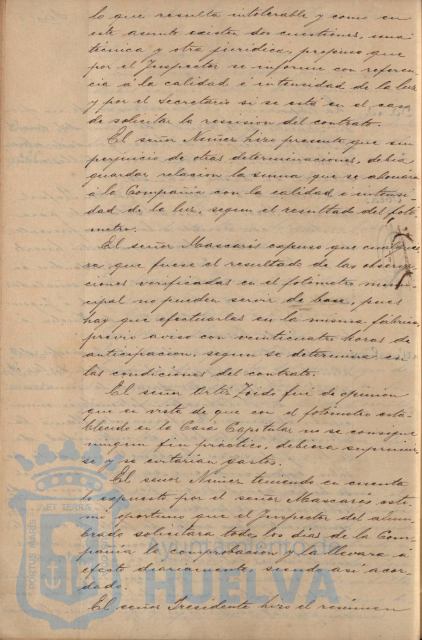 lo que resulta intolerable y como en
este asunto existen dos cuestiones, una
técnica y otra juridica, propuso que
por el Inspector se informe con referen-
cia á la calidad é intensidad de la luz
y por el Secretario si se está en el caso
de solicitar la rescisión del contrato.
El señor Nuñez hizo presente que sin
perjuicio de otras determinaciones, debia
guardar relacion la suma que se abonara
á la Compañia con la calidad é intensi-
dad de la luz, segun el resultado del fotó-
metro.
El señor Mascarós expuso que cualquie-
ra que fuese el resultado de las observa-
ciones verificadas en el fotómetro muni-
cipal no pueden servir de base, pues
hay que efectuarlas en la misma fábrica,
prévio aviso con veinticuatro horas de
anticipacion, segun se determina en
las condiciones del contrato.
El señor Ortiz fué de opinion
que en vista de que con el fotómetro esta-
blecido en la Casa Capitular no se consigue
ningun fin práctico, debiera suprimir-
se y se evitarian gastos.
El señor Nuñez teniendo en cuenta
lo expuesto por el señor Mascarós esti-
mó oportuno que el Inspector del alum-
brado solicitara todos los dias de la Com-
pañia la comprobacion y la llevara á
efecto diariamente, siendo así acor-
dado.
El señor Presidente hizo el resúmen
Ayuntamiento de
HUELVA